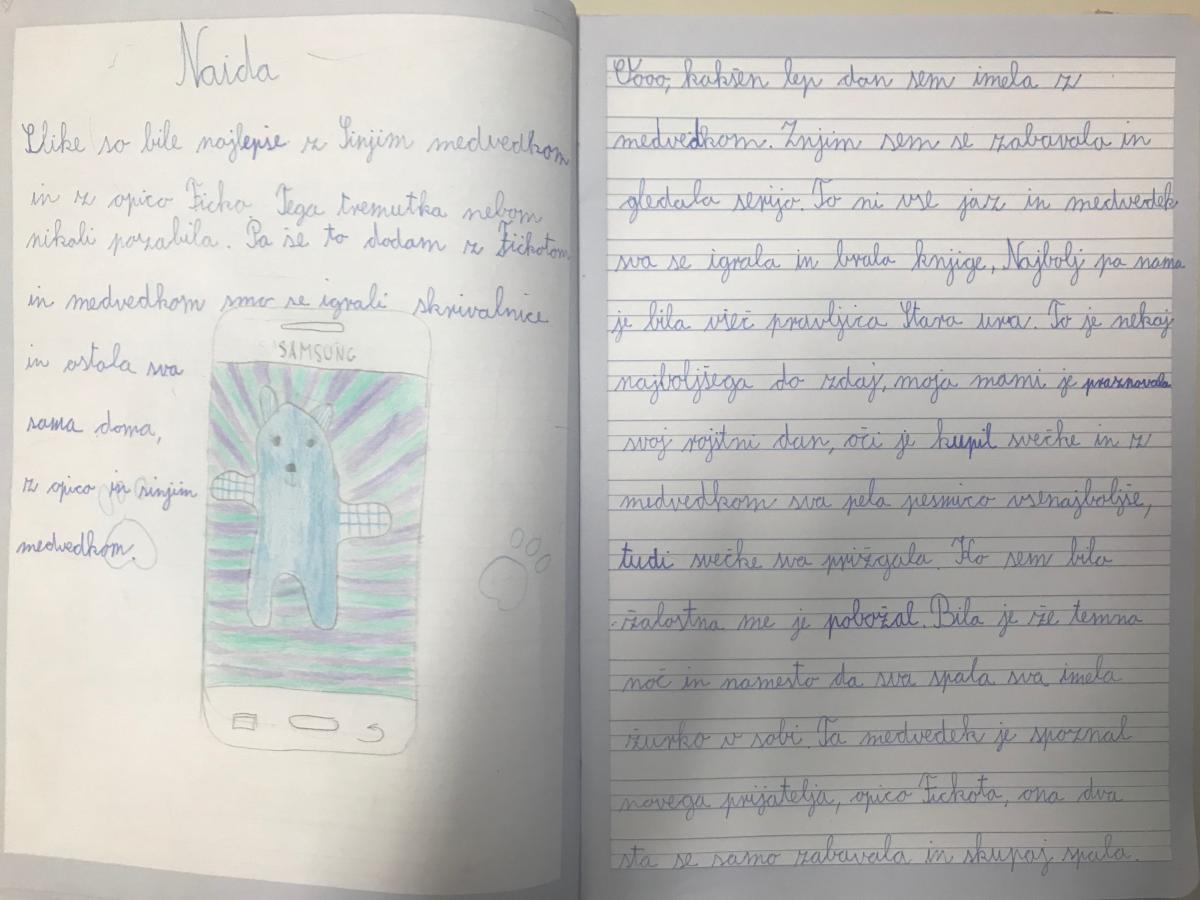 Naida
Slike so bile najlepše z Sinjim medvedkom
in z opico Ficko. Tega tremutka nebom
nikoli pozabila. Pa še to dodam z Fičkotom
in medvedkom smo se igrali skrivalnice
in ostala sva
sama doma,
z opico in sinjim
medvedkom.
SAMSUNG
Oooo, kakšen lep dan sem imela z
medvedkom. Znjim sem se zabavala in
gledala serijo. To ni vse jaz in medvedek
sva se igrala in brala knjige, Najbolj pa nama
je bila všeč pravljica Stara ura. To je nekaj
najboljšega do zdaj, moja mami je praznovala
svoj rojstni dan, oči je kupil svečke in z
medvedkom sva pela pesmico vsenajboljše,
tudi svečke sva prižgala. Ko sem bila
žalostna me je pobožal. Bila je že temna
noč in namesto da sva spala sva imela
žurko v sobi. Ta medvedek je spoznal
novega prijatelja, opico Fickota, ona dva
sta se samo zabavala in skupaj spala.